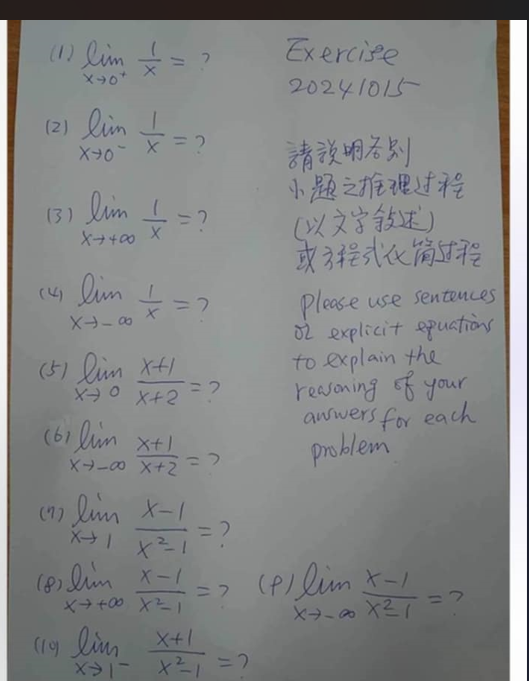 (1) lim x→0⁺ 1/x = ?
(2) lim x→0⁻ 1/x = ?
(3) lim x→+∞ 1/x = ?
(4) lim x→-∞ 1/x = ?
(5) lim x→0 (x+1)/(x+2) = ?
(6) lim x→-∞ (x+1)/(x+2) = ?
(7) lim x→1 (x-1)/(x²-1) = ?
(8) lim x→+∞ (x-1)/(x²-1) = ?
(9) lim x→-∞ (x-1)/(x²-1) = ?
(10) lim x→1⁻ (x+1)/(x²-1) = ?
Exercise
20241015
請說明各別
小題之推理过程
(以文字敘述)
或方程式化簡过程
please use sentences
or explicit equations
to explain the
reasoning of your
answers for each
problem